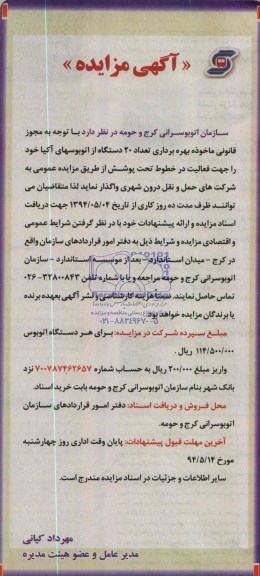 « آگهی مزایده »
سازمان اتوبوسرانی کرج و حومه در نظر دارد با توجه به مجوز
قانونی ماخوذه بهره برداری تعداد ۲۰ دستگاه از اتوبوسهای آکیا خود
را جهت فعالیت در خطوط تحت پوشش از طریق مزایده عمومی به
شرکت های حمل و نقل درون شهری واگذار نماید لذا متقاضیان می
توانند ظرف مدت ده روز کاری از تاریخ ۱۳۹۴/۰۵/۰۴ جهت دریافت
اسناد مزایده و ارائه پیشنهادات خود با در نظر گرفتن شرایط عمومی
و اقتصادی مزایده و شرایط ذیل به دفتر امور قراردادهای سازمان واقع
در کرج - میدان استاندارد - بعد از موسسه استاندارد - سازمان
اتوبوسرانی کرج و حومه مراجعه و یا با شماره تلفن ۳۲۸۰۰۸۴۳ - ۰۲۶
تماس حاصل نمایند. ضمناً هزینه کارشناسی و نشر آگهی بعهده برنده
یا برندگان مزایده خواهد بود.
۰۲۱-۸۸۳۴۹۶۷۰-۵
مبلغ سپرده شرکت در مزایده: برای هر دستگاه اتوبوس
۱۱۴/۵۰۰/۰۰۰ ریال .
واریز مبلغ ۲۰۰/۰۰۰ ریال به حساب شماره ۷۰۰۷۸۷۴۶۲۶۵۷ نزد
بانک شهر بنام سازمان اتوبوسرانی کرج و حومه بابت خرید اسناد.
محل فروش و دریافت اسناد: دفتر امور قراردادهای سازمان
اتوبوسرانی کرج و حومه.
آخرین مهلت قبول پیشنهادات: پایان وقت اداری روز چهارشنبه
مورخ ۹۴/۵/۱۴
سایر اطلاعات و جزئیات در اسناد مزایده مندرج است.
مهرداد کیانی
مدیر عامل و عضو هیئت مدیره